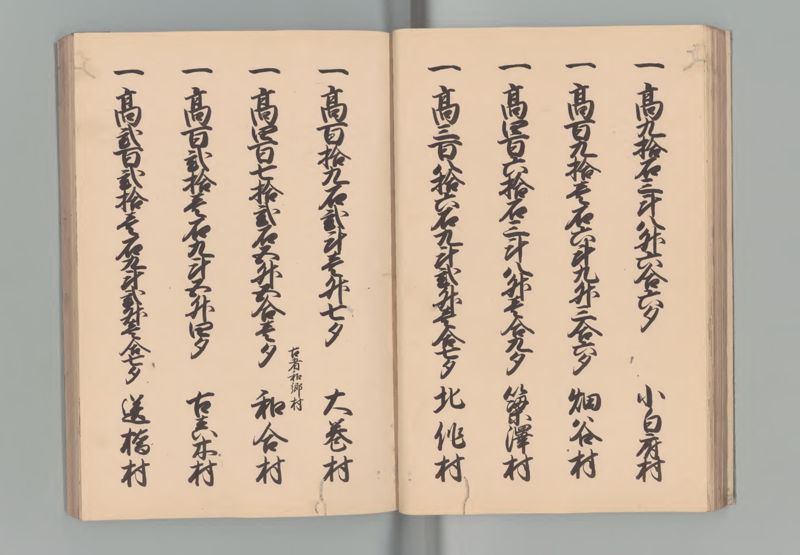 一 高九拾石三斗八升六合六夕 小白府村
一 高百九拾壱石六斗九升三合六夕 畑谷村
一 高四百六拾石三斗八升壱合九夕 簗澤村
一 高三百八拾六石九斗弐升壱合七夕 北作村
一 高百拾九石弐斗壱升七夕 大巻村
古者和郷村
一 高四百七拾弐石五升五合壱夕 和合村
一 高百弐拾壱石九斗五升四夕 古真木村
一 高弐百弐拾壱石九斗弐升壱合七夕 送橋村